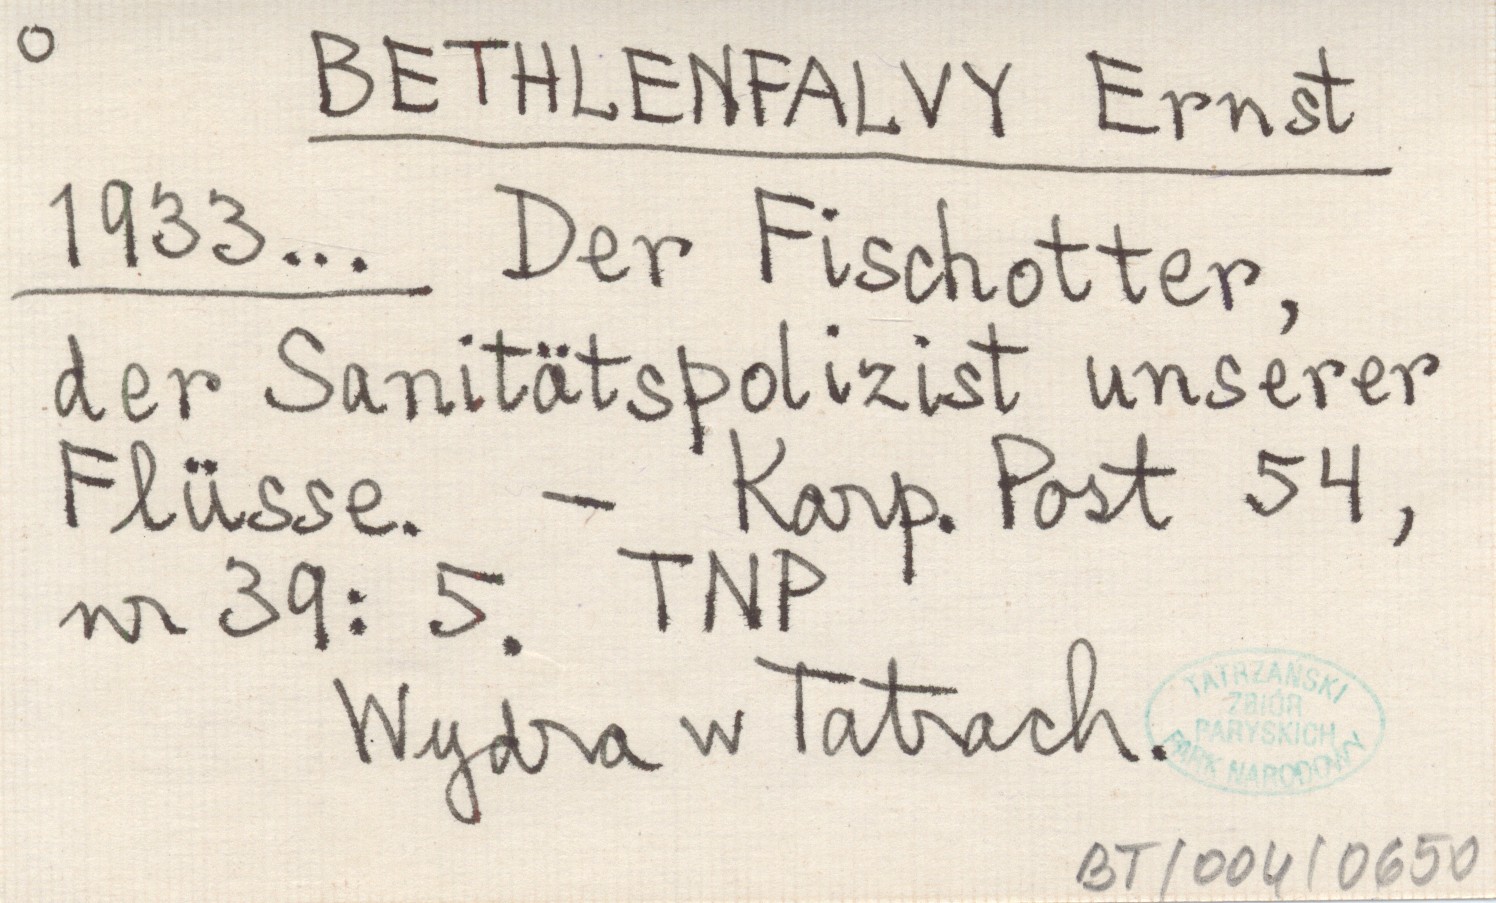 o
BETHLENFALVY Ernst
1933... Der Fischotter,
der Sanitätspolizist unserer
Flüsse. – Karp. Post 54,
nr 39: 5. TNP
Wydra w Tatrach.
TATRZAŃSKI
ZBIÓR
PARYSKICH
PARK NARODOWY
BT/004/0650